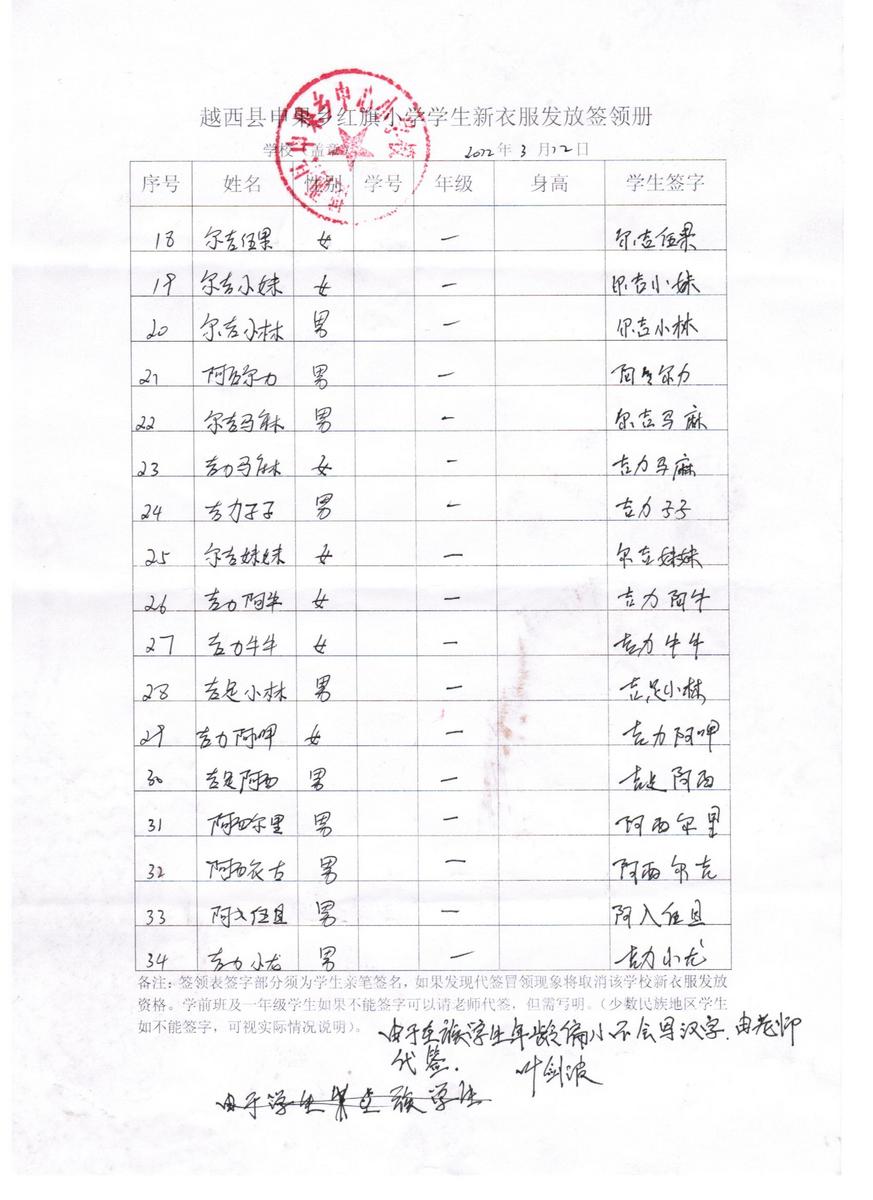 越西县申果乡红旗小学学生新衣服发放签领册
学校（盖章） 2012年3月12日
序号 姓名 性别 学号 年级 身高 学生签字
18 尔吉伍果 女 一 尔吉伍果
19 尔吉小妹 女 一 尔吉小妹
20 尔吉小林 男 一 尔吉小林
21 阿西尔力 男 一 阿西尔力
22 尔吉马麻 男 一 尔吉马麻
23 吉力马麻 女 一 吉力马麻
24 吉力子子 男 一 吉力子子
25 尔吉妹妹 女 一 尔吉妹妹
26 吉力阿牛 女 一 吉力阿牛
27 吉力牛牛 女 一 吉力牛牛
28 吉足小林 男 一 吉足小林
29 吉力阿呷 女 一 吉力阿呷
30 吉足阿西 男 一 吉足阿西
31 阿西尔里 男 一 阿西尔里
32 阿西 男 一 阿西尔
33 阿入伍且 男 一 阿入伍且
34 吉力小龙 男 一 吉力小龙
备注：签领表签字部分须为学生亲笔签名，如果发现代签冒领现象将取消该学校新衣服发放
资格。学前班及一年级学生如果不能签字可以请老师代签，但需写明。（少数民族地区学生
如不能签字，可视实际情况说明）。
由于 族学生年龄偏小不会写汉字，由老师
代签． 叶剑波
由于学生 族学生